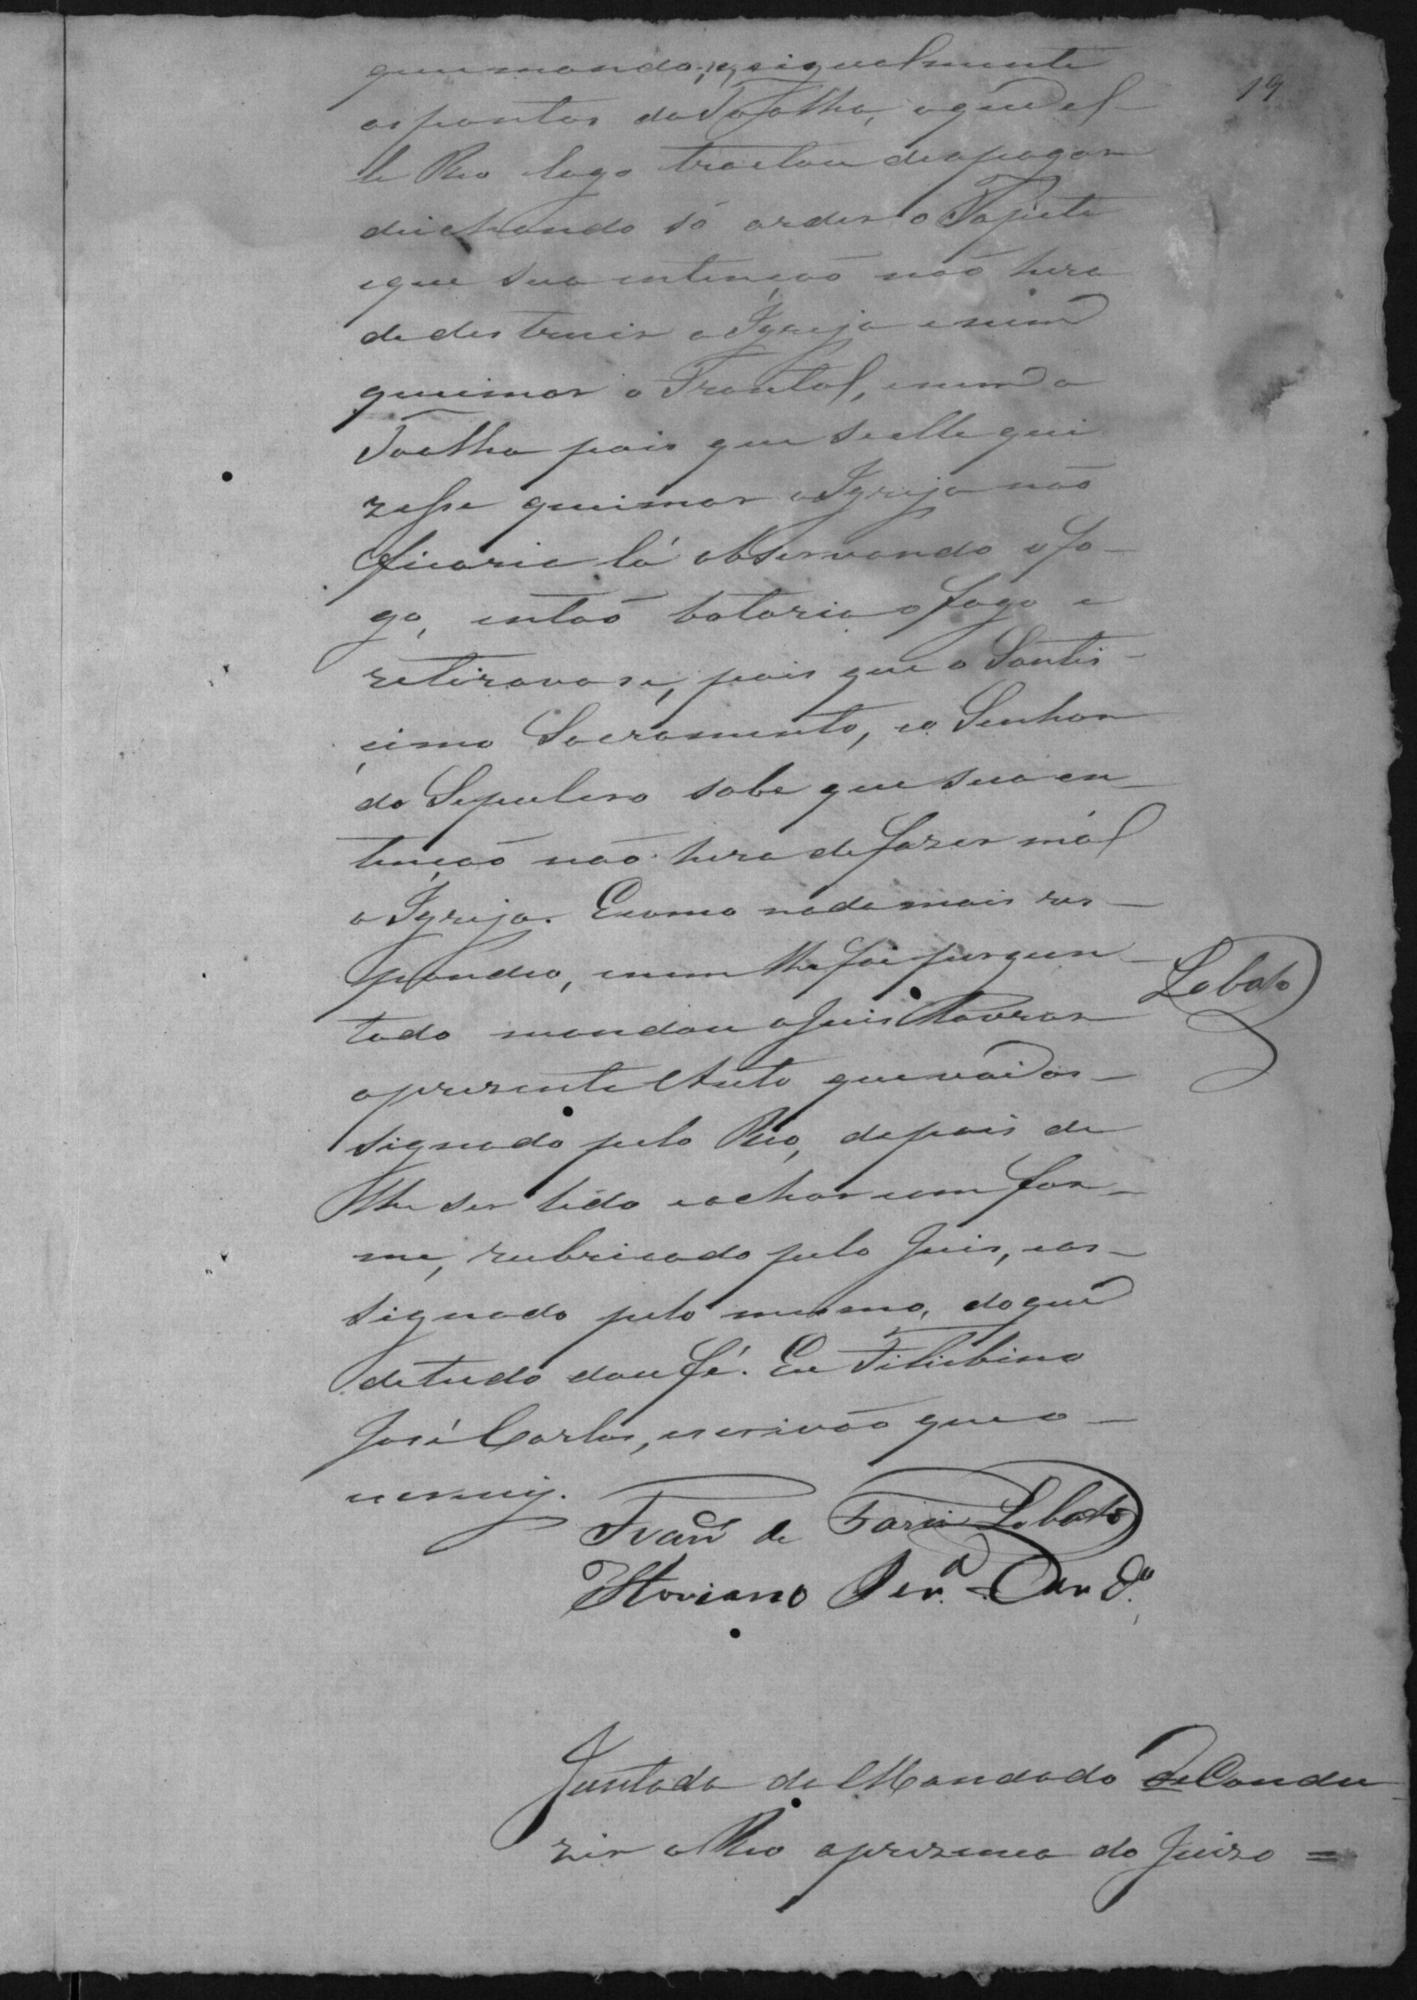 19
queimando, e igualmente
as pontas da Toalha, o que el-
le Reo logo tractou de apagar
deichando só arder o Tapete
e que sua entenção não hera
de destruir a Igreja e nem
queimar o Frontal, e nem a
Toalha pois que se elle qui
zesse queimar a Igreja não
ficaria lá observando o fo-
go, então botaria o fogo e
retirava se, pois que o Santis-
cimo Sacramento, e o Senhor
do Sepulcro sabe que sua en-
tenção não hera de fazer mal
a Igreja. E como nada mais res-
pondeo, e nem lhe foi pergun-
tado mandou o Juis lavrar
o presente Auto que vai as-
signado pelo Reo, depois de
lhe ser lido e achar com for-
me, rubricado pelo Juis, e as-
signado pelo mesmo, do que
de tudo dou fé. Eu
José Carlos, escrivão que o
escrevy.
Lobato
Fran de Faria Lobato
Floriano Per.ª Card.º
Juntada do Mandado de Condu-
zir o Reo a presença do Juizo =